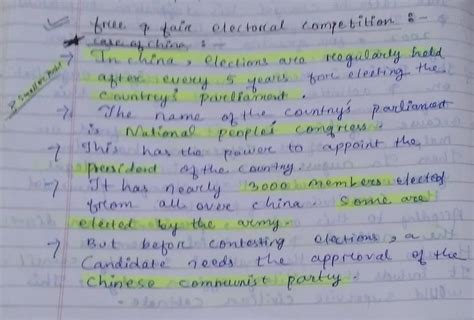 free & fair electorial competition :-
case of china :-
→ In china, elections are reagularly held
after every 5 years for electing the
country's parliament.
→ The name of the country's parliament
is National people's congress.
→ This has the power to appoint the
president of the country.
→ It has nearly 3000 members elected
from all over china. Some are
elected by the army.
→ But before contesting elections, a
Candidate needs the approval of the
chinese communist party.